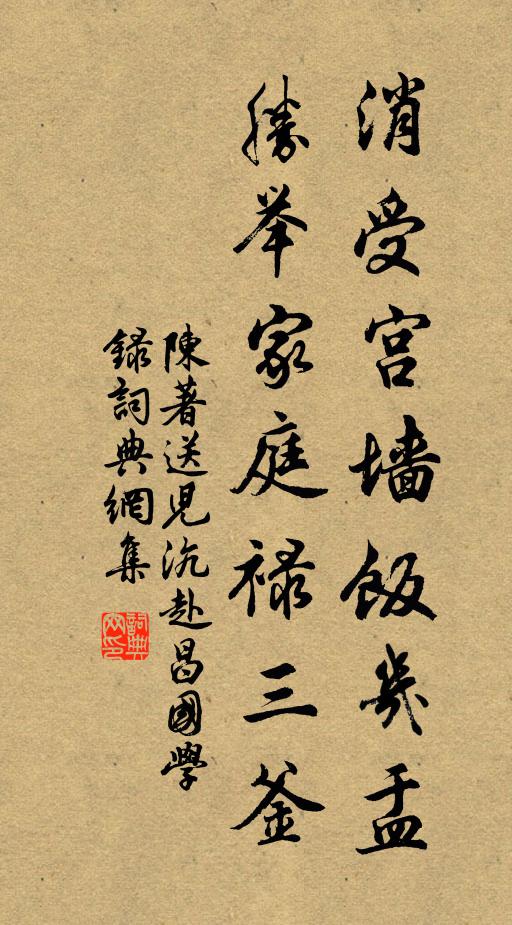 消受宫墙饭几盂
勝举家庭禄三釜
陳著送児沆赴昌國學
録詞典網集
詞典网印